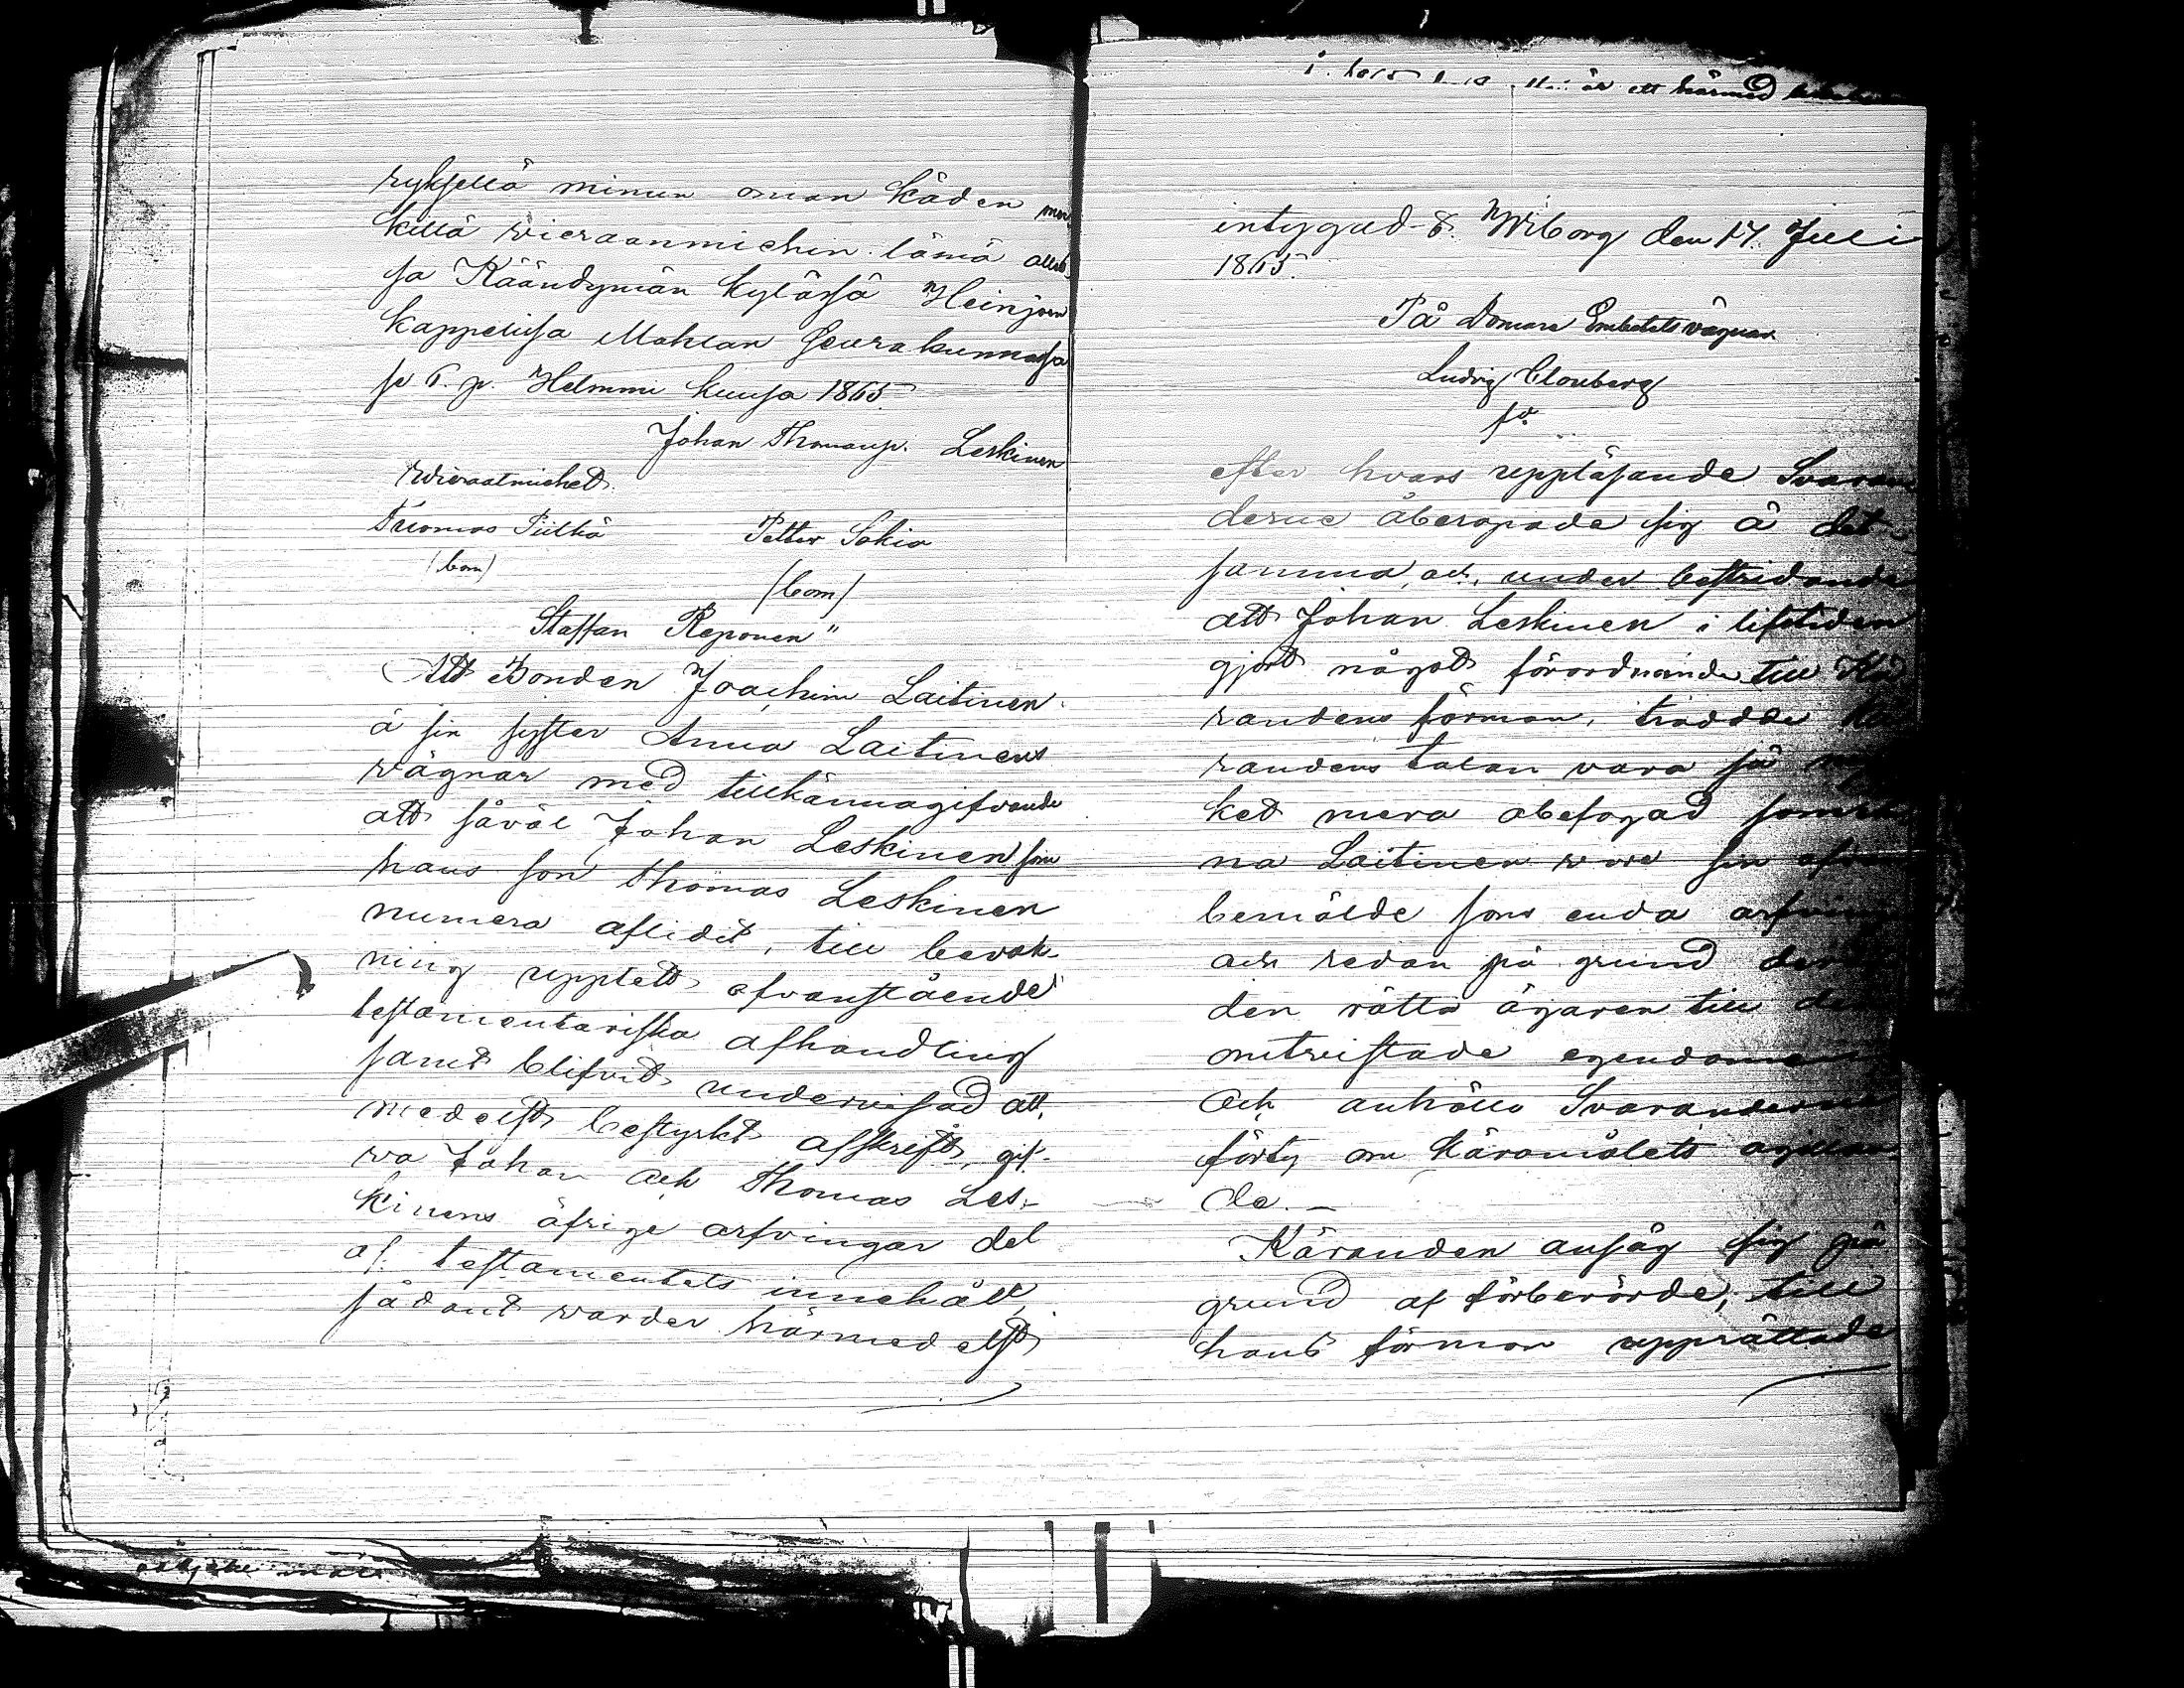 ryksellä minun oman käden mer¬
killä wieraanmiehin läsnä olles¬
sa Käändymän kylässä Heinjoen
kappelisa Mohlan Seurakunnassa
se 6. p. Helmmi kuusa 1865
Johan Thomasp. Leskinen
Wieraatmiehet.
Tuomas Pilkä Petter Sokia
(bom) (bom)
Staffan Reponen"
Att Bonden Joachim Laitinen
å sin syster Anna Laitinens
vägnar med tillkännagifvande
att såväl Johan Leskinen som
hans son Thomas Leskinen
numera aflidit, till bevak¬
ning upptett ofvanstående
testamentariska afhandling
samt blifvit undervisad att,
medelst bestyrkt afskrift, gif¬
va Johan och Thomas Les¬
kinens öfrige arfvingar del
af testamentets innehåll,
sådant varder härmedelst
är ett härmed
intygad. Wiborg den 17 Juli
1865.
På Domare Embetets vägnar
Ludvig Clouberg
efter hvars uppläsande Svaran
derne åberopade sig å det¬
samma, och, under bestridande
att Johan Leskinen i lifstiden
gjort något förordnande till Kä
randens förmon, trodde Kä
randens talan vara så my
ket mera obefogad som An
na Laitinen vore sin
bemälde sons enda arfvin
och redan på grund
den rätta ägaren till den
omtvistade egendomen
Och anhöllo Svaranderne
förty om käromålets ogillan
de. —
Käranden ansåg sig på
grund af förberörde, till
hans förmon upprättade